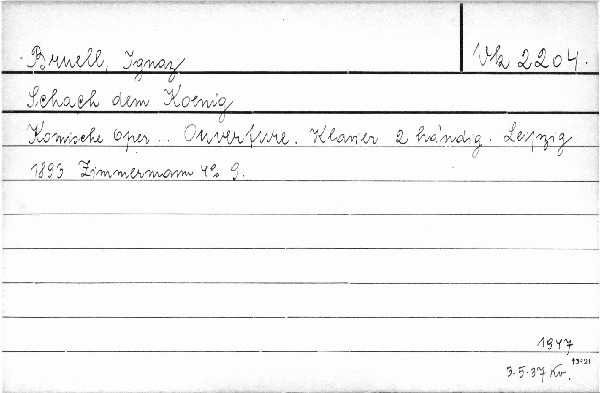 Bruell, Ignaz
Vk 2204.
Schach dem Koenig
Komische Oper... Ouverture. Klavier 2 händig. Leipzig
1893 Zimmermann 4° 9.
1947
13-21
3.5.37 Kv.